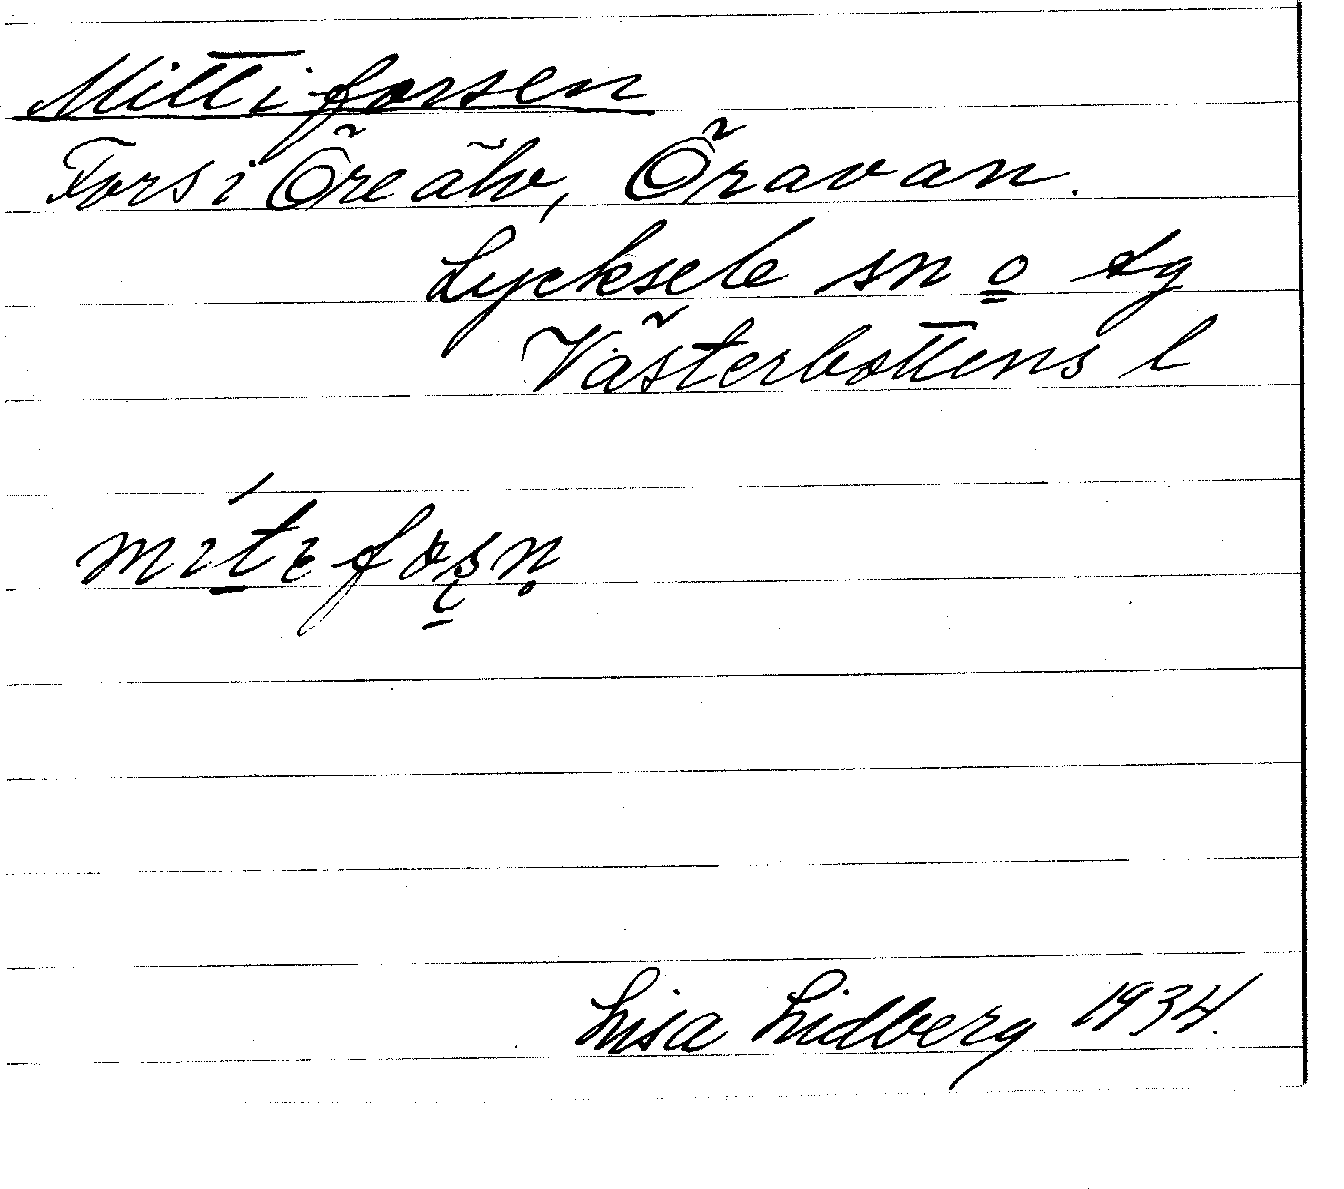 Mittiforsen
Fors i Öre älv, Öravan.
Lycksele sn o lg
Västerbottens l
Lisa Lidberg 1934.